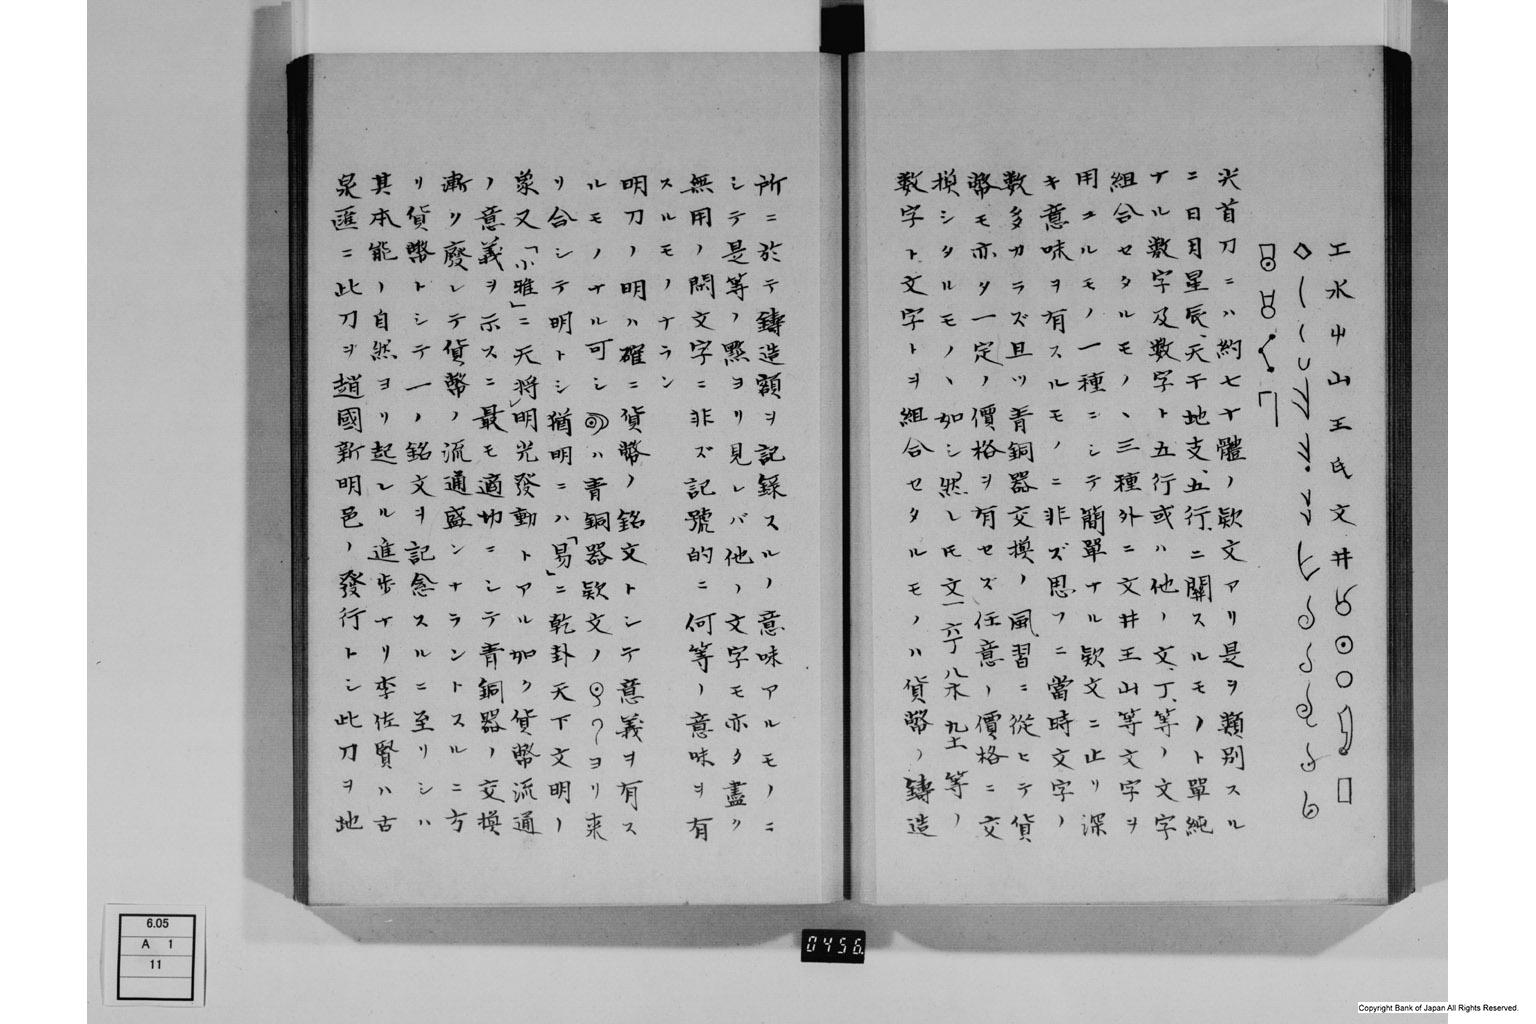 工水屮山王氏文井
尖首刀ニハ約七十體ノ欵文アリ是ヲ類別スル
ニ日月星辰、天干地支、五行、ニ關スルモノト單純
ナル數字及数字ト五行或ハ他ノ文、丁、等ノ文字
組合セタルモノ、三種外ニ文井王山等文字ヲ
用ユルモノ一種ニシテ簡單ナル欵文ニ止リ深
キ意味ヲ有スルモノニ非ズ思フニ當時文字ノ
数多カラズ且ツ青銅器交換ノ風習ニ從ヒテ貨
幣モ亦タ一定ノ價格ヲ有セズ任意ノ價格ニ交
換シタルモノヽ如シ然レ氏文一六丁八木九土等ノ
数字ト文字トヲ組合セタルモノハ貨幣ノ鑄造
所ニ於テ鑄造額ヲ記錄スルノ意味アルモノニ
シテ是等ノ㸃ヨリ見レバ他ノ文字モ亦タ盡ク
無用ノ閑文字ニ非ズ記號的ニ何等ノ意味ヲ有
スルモノナラン
明刀ノ明ハ確ニ貨幣ノ銘文トシテ意義ヲ有ス
ルモノナル可シハ青銅器欵文ノヨリ来
リ合シテ明トシ猶明ニハ「易」ニ乾卦天下文明ノ
象又「小雅」ニ天将明光發動トアル如ク貨幣流通
ノ意義ヲ示スニ最モ適切ニシテ青銅器ノ交換
漸リ廢レテ貨幣ノ流通盛ンナラントスルニ方
リ貨幣トシテ一ノ銘文ヲ記念スルニ至リシハ
其本能ノ自然ヨリ起レル進歩ナリ李佐賢ハ古
泉匯ニ此刀ヲ趙國新明邑ノ發行トシ此刀ヲ地
0456.
6.05
A 1
11
Copyright Bank of Japan All Rights Reserved.